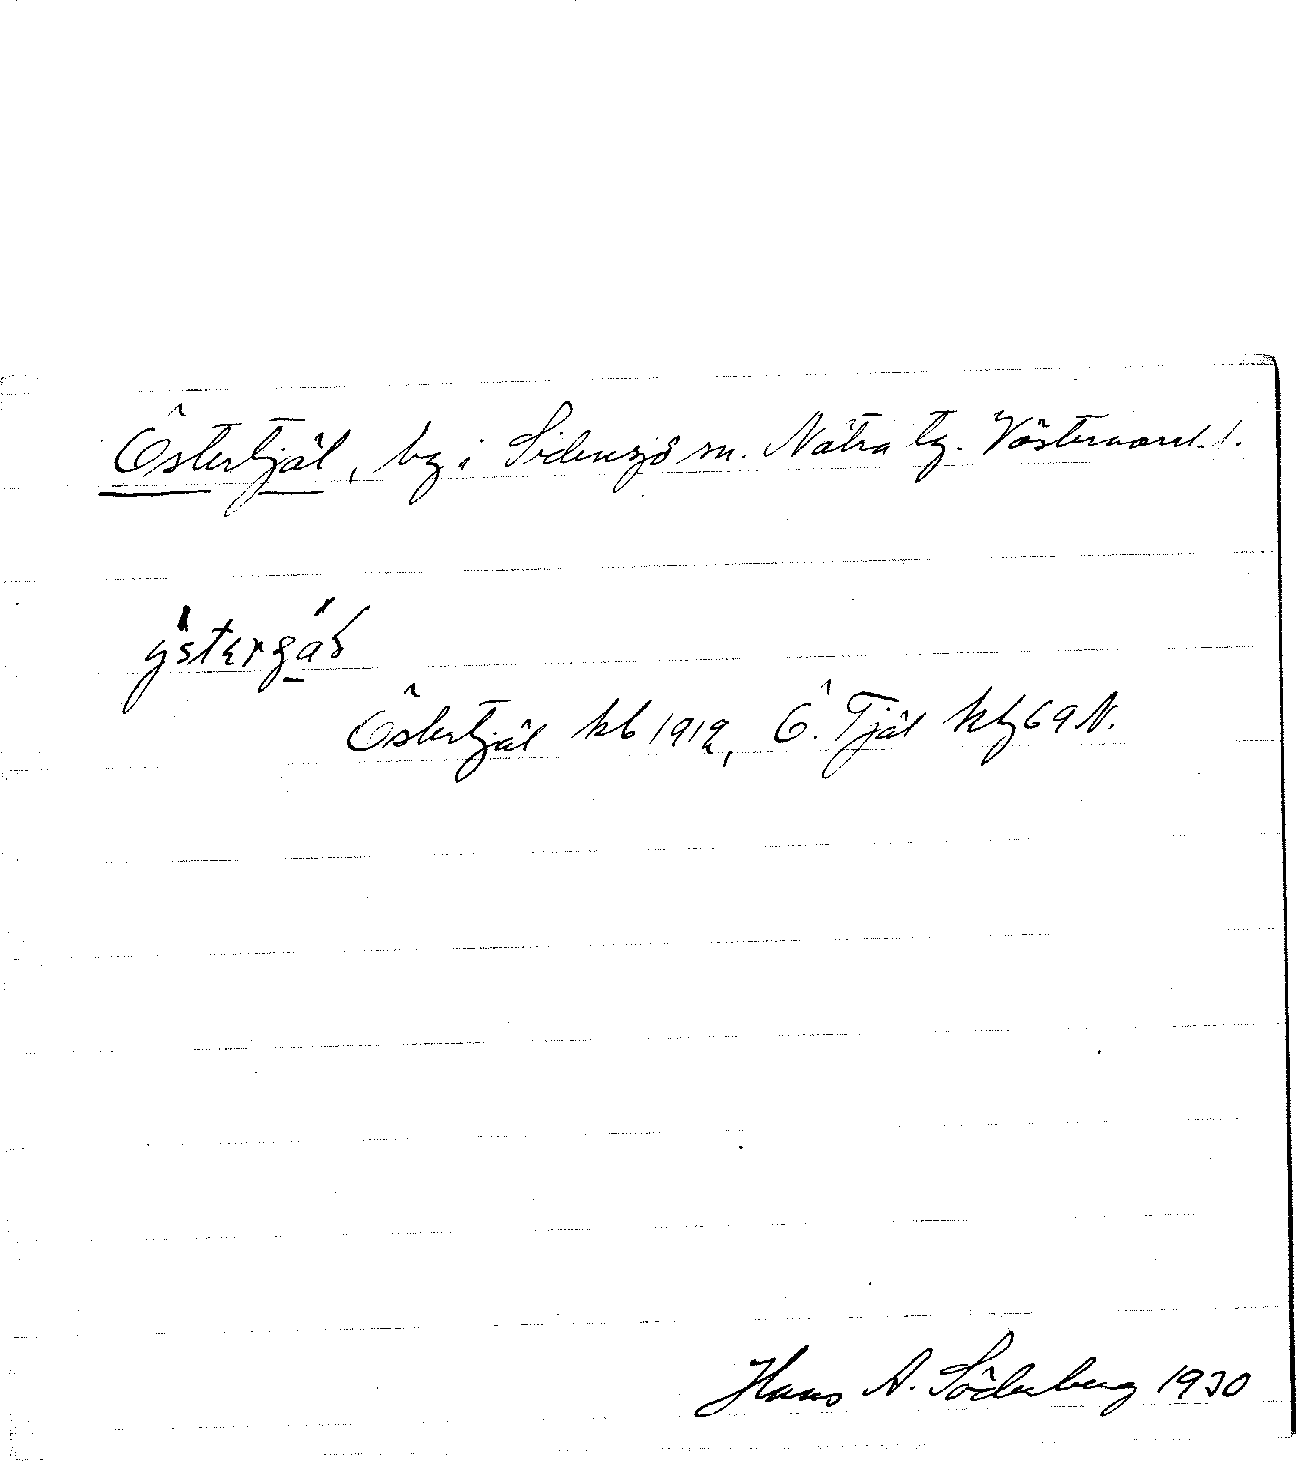 Östertjäl, by i Sidensjö sn. Nätra tg. Västernorrl. l.
Östertjäl kb 1912, Ö. Tjäl kbl 69 N.
Hans A. Söderberg 1930